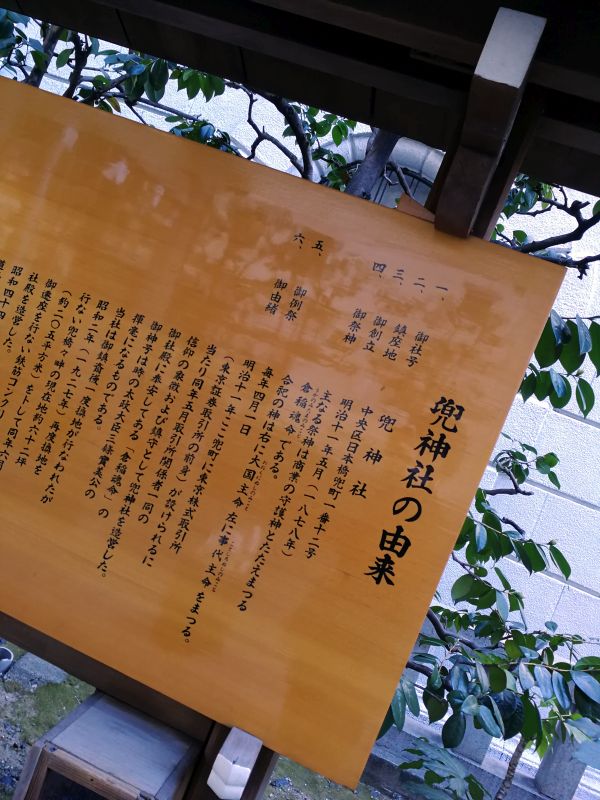 兜神社の由来
一、御社号 兜神社
二、鎮座地 中央区日本橋兜町一番十二号
三、御創立 明治十一年五月(一八七八年)
四、御祭神 主なる祭神は商業の守護神とたたえまつる
倉稲魂命である。
合祀の神は右に大国主命 左に事代主命をまつる。
五、御例祭 毎年四月一日
六、御由緒 明治十一年ここ兜町に東京株式取引所
(東京証券取引所の前身)が設けられるに
当たり同年五月取引所関係者一同の
信仰の象徴および鎮守として兜神社を造営した。
御社殿に奉安してある「倉稲魂命」の
御神号は時の太政大臣三條實美公の
揮毫になるものである。
当社は御鎮斎後一度換地が行なわれたが
昭和二年(一九二七年)再度換地を
行ない兜橋々畔の現在地約六十二坪
(約二〇五平方米)を卜して同年六月
御遷座を行ない鉄筋コンクリー
社殿を造営した。
昭和四十四